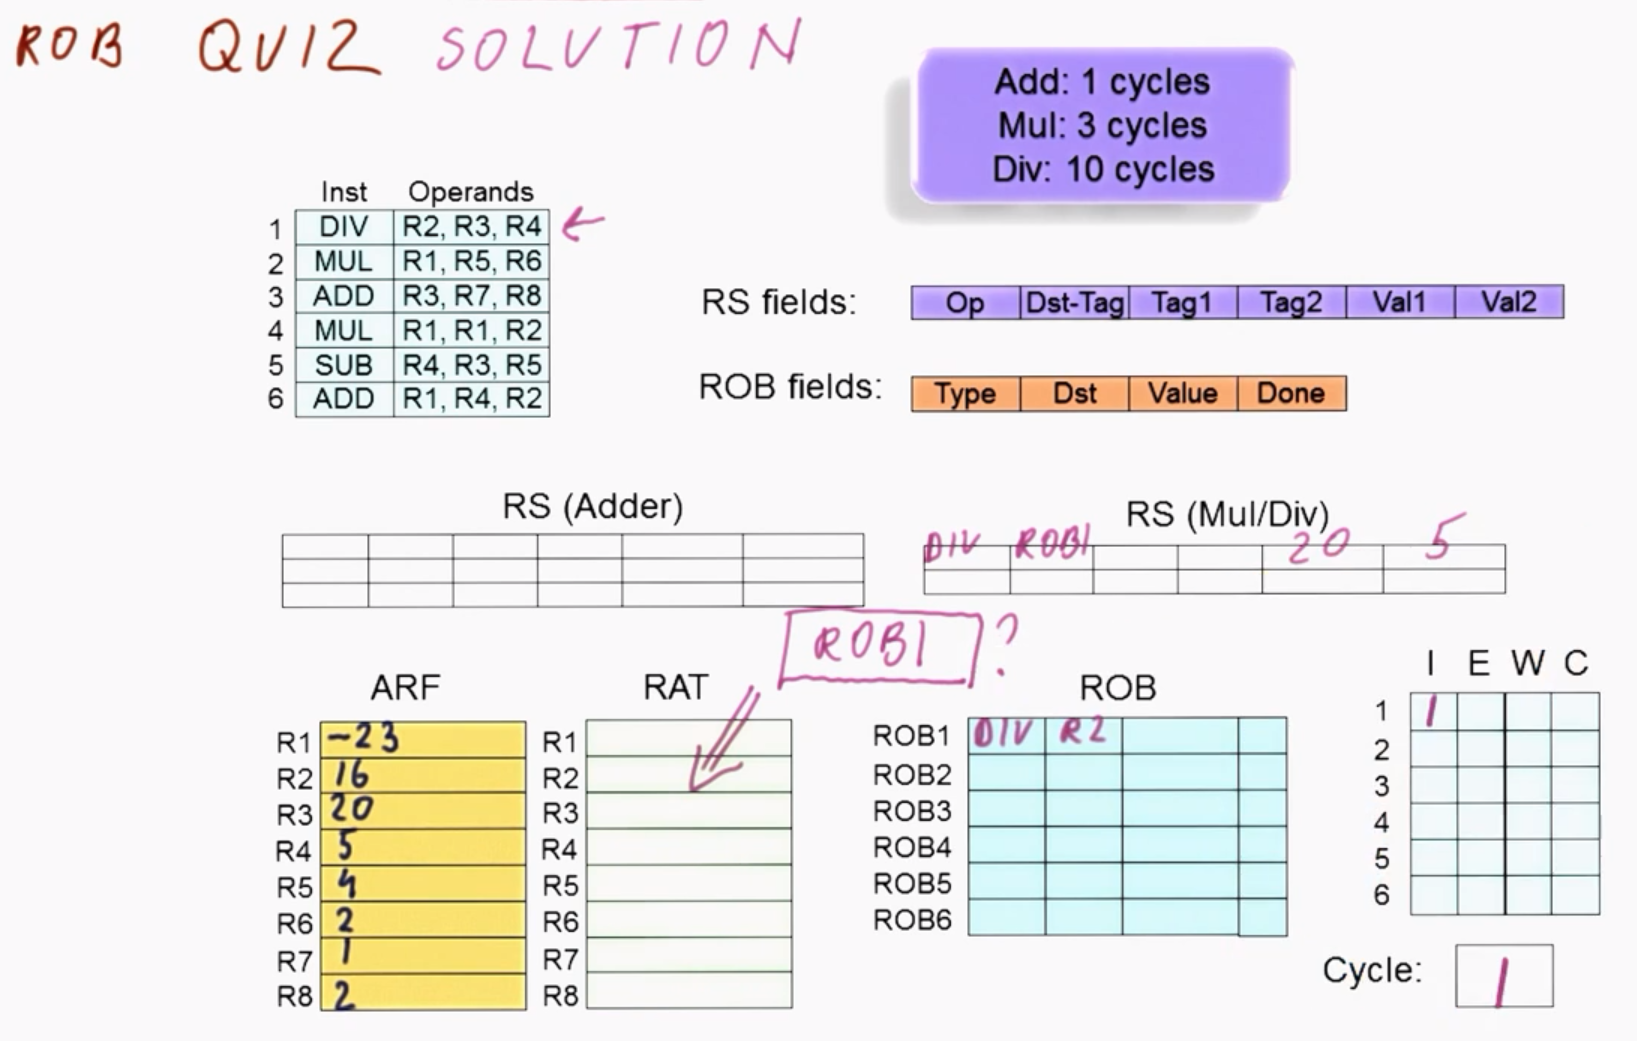 ROB QUIZ SOLUTION
Add: 1 cycles
Mul: 3 cycles
Div: 10 cycles
Inst Operands
1 DIV R2, R3, R4
2 MUL R1, R5, R6
3 ADD R3, R7, R8
4 MUL R1, R1, R2
5 SUB R4, R3, R5
6 ADD R1, R4, R2
RS fields: Op Dst-Tag Tag1 Tag2 Val1 Val2
ROB fields: Type Dst Value Done
RS (Adder)
RS (Mul/Div)
DIV ROB1 20 5
ROB1 ?
ARF
R1 -23
R2 16
R3 20
R4 5
R5 4
R6 2
R7 1
R8 2
RAT
R1
R2
R3
R4
R5
R6
R7
R8
ROB
ROB1 DIV R2
ROB2
ROB3
ROB4
ROB5
ROB6
I E W C
1 1
2
3
4
5
6
Cycle: 1